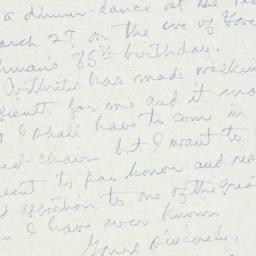 a dinner-dance at the
March 27 on the eve of Gover
85th birthday.
Arthritis has made walkin
difficult for me and it
I shall have to come in
chair but I want to
to pay honor and res
affection to one of the great
I have ever known
Yours sincerely,